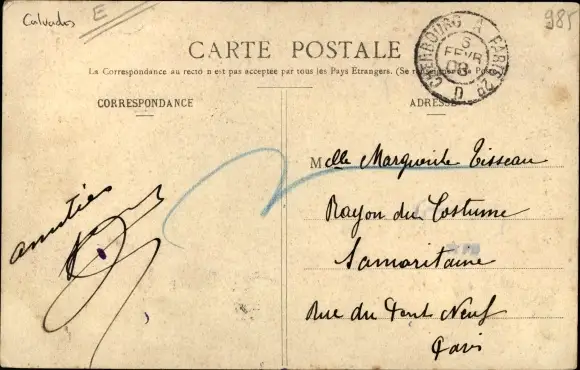 Calvados
E
985
CARTE POSTALE
La Correspondance au recto n'est pas acceptée par tous les Pays Etrangers. (Se renseigner à la Poste
CHERBOURG A PARIS
6
FEVR
D
CORRESPONDANCE
ADRESSE
Melle Marguerite Tisseau
Rayon du Costume
Samaritaine
Rue du Pont Neuf
Paris
amitiés